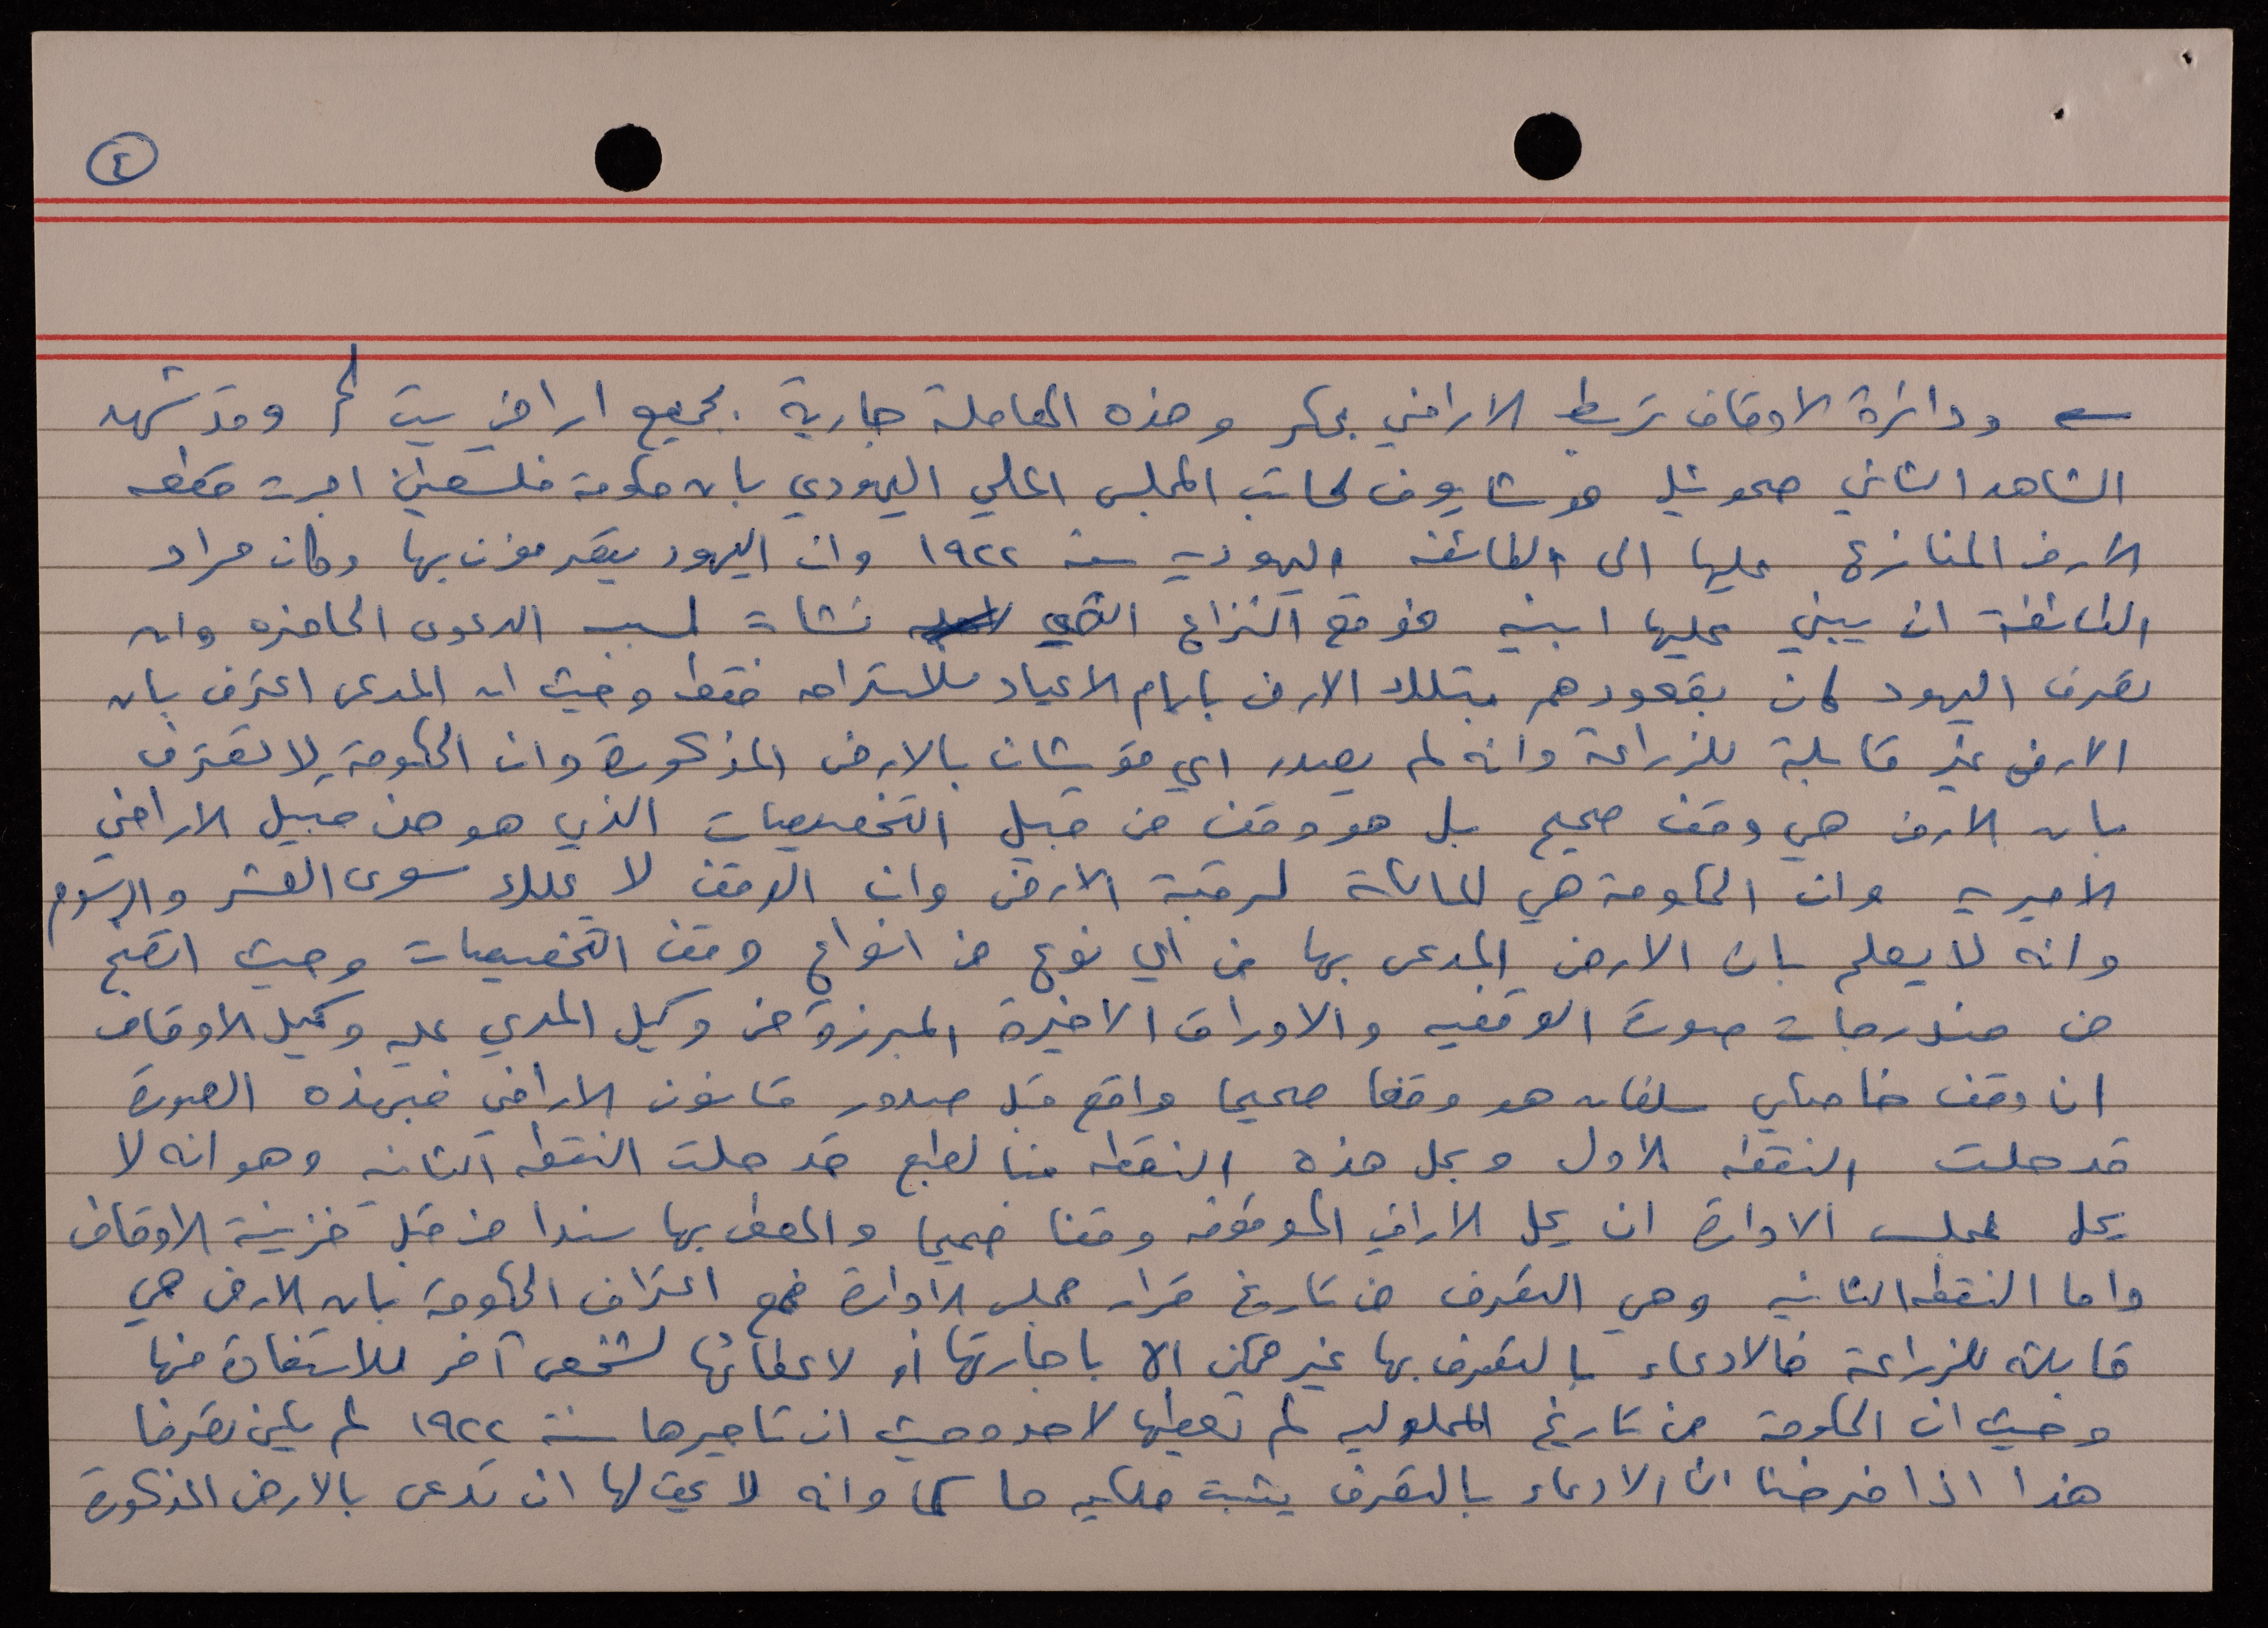 ٤
ودائرة الاوقاف تربط الاراضي بحكر وهذه المعاملة جارية بجميع اراضي بيت لحم وقد شهد
الشاهد الثاني صموئيل كاتب المجلس الملي اليهودي بان حكومة فلسطين اجرت قطعه
الارض المنازع عليها الى الطائفه اليهوديه سنه ١٩٢٢ وان اليهود يتصرفون بها وكان مراد
الطائفة ان يبني عليها ابنيه فوقع النزاع الذي نشاة لسببه الدعوى الحاضره وان
تصرف اليهود كان بقعودهم بتلك الارض بايام الاعياد للاستراحه فقط وحيث ان المدعى اعترف بان
الارض غير قابلة للزراعة وانه لم يصدر اي قوشان بالارض المذكورة وان الحكومة لا تعترف
بان الارض هي وقف صحيح بل هو وقف من قبيل التخصيصات الذي هو من قبيل الاراضي
الاميريه وان الحكومة هي المالكة لرقبة الارض وان الوقف لا يملك سوى العشر والرسوم
وانه لا يعلم بان الارض المدعى بها من اي نوع من انواع وقف التخصيصات وحيث اتضح
من مندرجات صورة الوقفيه والاوراق الاخيرة المبرزة من وكيل المدعي عليه وكيل الاوقاف
ان وقف خاصكي سلطان هو وقفا صحيحا واقع قبل صدور قانون الاراضي فبهذه الصورة
قد حلت النقطه الاولى وبحل هذه النقطه فبالطبع قد حلت النقطه الثانيه وهو انه لا
يحل لمجلس الادارة ان يحل الاراضي الموقوفه وقفا صحيحا والمعطى بها سندا من قبل خزينة الاوقاف
واما النقطه الثانيه وهي التصرف من تاريخ قرار مجلس الادارة فمع اعتراف الحكومة بان الارض هي
قابلة للزراعة فالادعاء بالتصرف بها غير ممكن الا باجارتها او لاعطائها لشخص آخر للاستفادة منها
وحيث ان الحكومة من تاريخ المحلوليه لم تعطها لاحد وحيث ان تاجيرها سنة ١٩٢٢ لم يكن تصرفا
هذا اذا فرضنا ان الادعاء بالتصرف يثبت ملكيه ما كما وانه لا يحق لها ان تدعى بالارض المذكورة